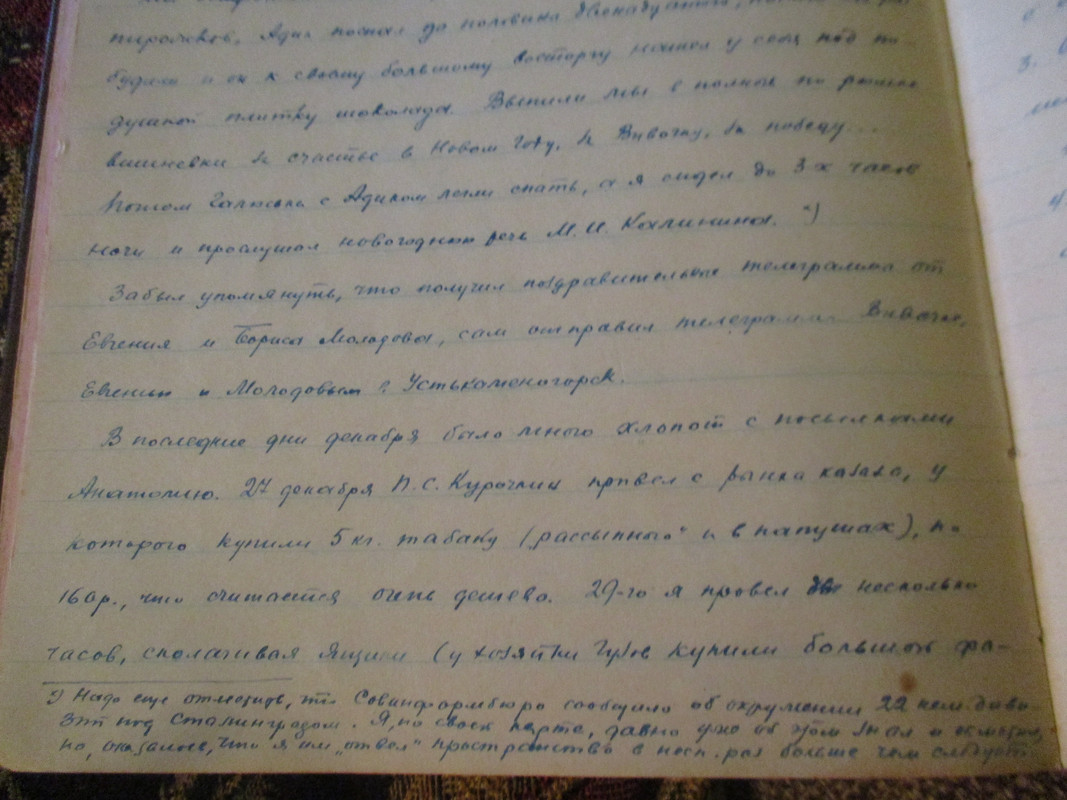 пирожков, Адик поспал до половины двенадцатого,
будили и он к своему большому восторгу нашел у себя под по-
душкой плитку шоколада. Выпили мы с полночь по рюмке
вишневки за счастье в Новом Году, за Вивочку, за победу...
Потом Галюська с Адиком легли спать, а я сидел до 3-х часов
ночи и прослушал новогоднюю речь М. И. Калинина. *)
Забыл упомянуть, что получил поздравительные телеграммы от
Евгения и Бориса Молодова, сам отправил телеграммы Вивочке,
Евгению и Молодовым в Устькаменогорск.
В последние дни декабря было много хлопот с посылками
Анатолию. 27 декабря П. С. Курочкин привел с рынка казаха, у
которого купили 5 кг. табаку („рассыпного" и в папушах), по
160р., что считается очень дешево. 29-го я провел несколько
часов, сколачивая ящики (у хозяйки купили большой фа-
*) Надо еще отметить, что Совинформбюро сообщало об окружении 22 нем. диви-
зий под Сталинградом. Я, по своей карте, давно уже об этом знал и отметил,
но, оказалось, что я им „отвел" пространство в неск. раз больше чем следует.
3.